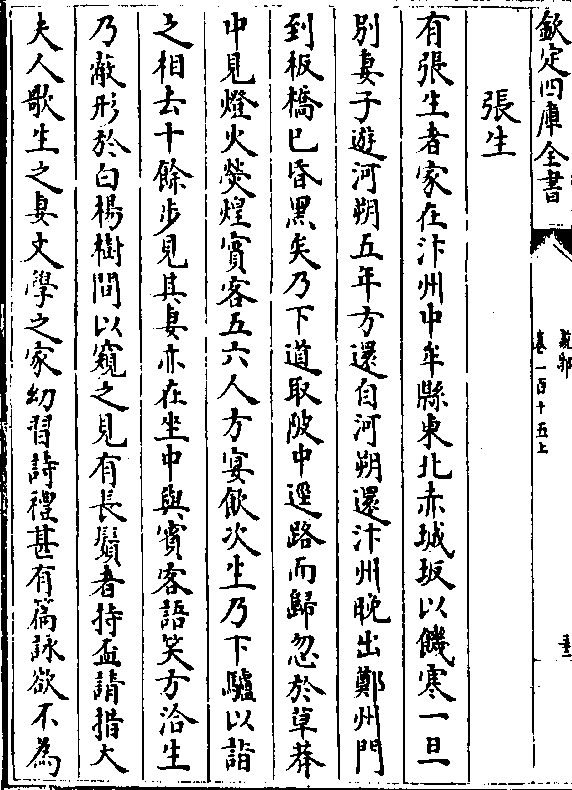 欽定四庫全書
說郛
卷一百十五上
張生
有張生者家在汴州中牟縣東北赤城坂以饑寒一旦
別妻子遊河朔五年方還自河朔還汴州晚出鄭州門
到板橋已昏黑矣乃下道取陂中逕路而歸忽於草莽
中見燈火熒煌賓客五六人方宴飲次生乃下驢以詣
之相去十餘步見其妻亦在坐中與賓客語笑方洽生
乃蔽形於白楊樹間以窺之見有長鬚者持盃請措大
夫人歌生之妻文學之家幼習詩禮甚有篇詠欲不為